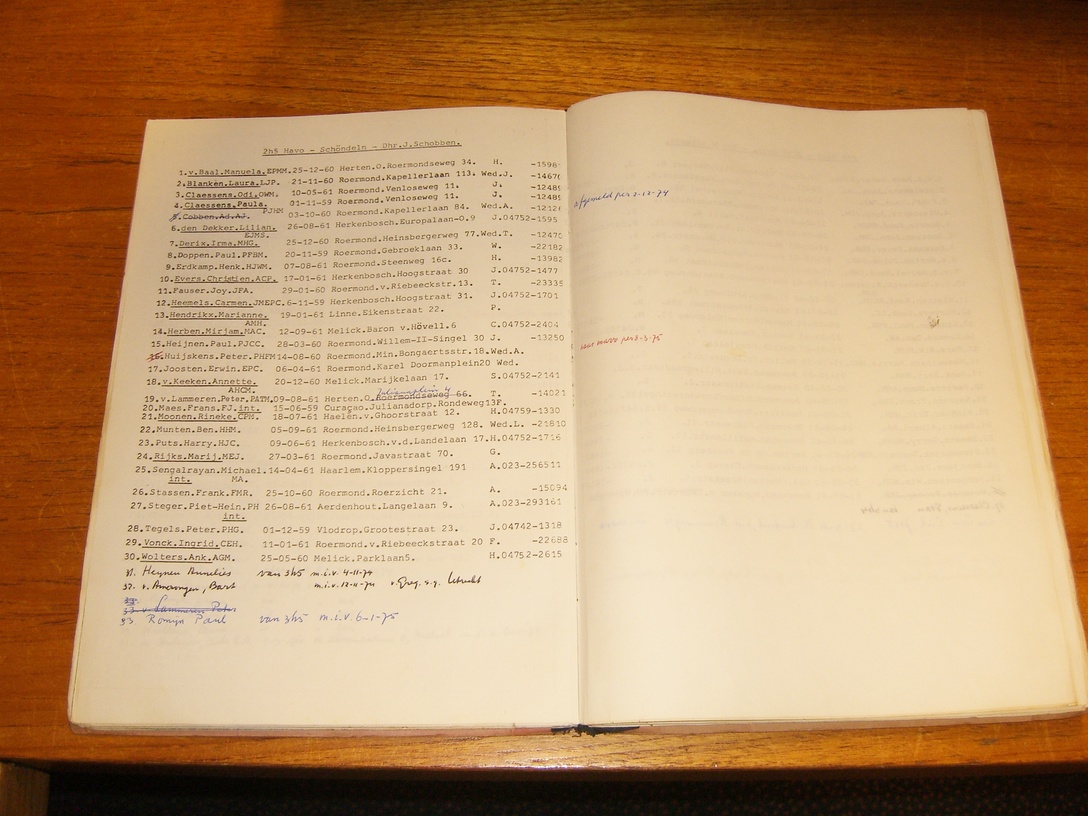 2h5 Havo - Schöndeln - Dhr.J.Schobben.
1.v.Baal.Manuela.EPMM.25-12-60 Herten.O.Roermondseweg 34. H. -1598
2.Blanken.Laura.LJP. 21-11-60 Roermond.Kapellerlaan 113. Wed.J. -1467
3.Claessens.Odi.OWM. 10-05-61 Roermond.Venloseweg 11. J. -12489
4.Claessens.Paula. 01-11-59 Roermond.Venloseweg 11. J. -12489
PJHM
5.Cobben.Ad.AJ. 03-10-60 Roermond.Kapellerlaan 84. Wed.A. -1212
afgemeld per 2-12-74
6.den Dekker.Lilian. 26-08-61 Herkenbosch.Europalaan-0.9 J.04752-1595
EJMS.
7.Derix.Irma.MHG. 25-12-60 Roermond.Heinsbergerweg 77.Wed.T. -1247
8.Doppen.Paul.PFBM. 20-11-59 Roermond.Gebroeklaan 33. W. -22182
9.Erdkamp.Henk.HJWM. 07-08-61 Roermond.Steenweg 16c. H. -13982
10.Evers.Christien.ACP. 17-01-61 Herkenbosch.Hoogstraat 30 J.04752-1477
11.Fauser.Joy.JFA. 29-01-60 Roermond.v.Riebeeckstr.13. T. -23335
12.Heemels.Carmen.JMEPC.6-11-59 Herkenbosch.Hoogstraat 31. J.04752-1701
13.Hendrikx.Marianne. 19-01-61 Linne.Eikenstraat 22. P.
AMH.
14.Herben.Mirjam.MAC. 12-09-61 Melick.Baron v.Hövell.6 C.04752-2404
15.Heijnen.Paul.PJCC. 28-03-60 Roermond.Willem-II-Singel 30 J. -13250
16.Huijskens.Peter.PHFM14-08-60 Roermond.Min.Bongaertsstr.18.Wed.A.
naar mavo per 3-3-75
17.Joosten.Erwin.EPC. 06-04-61 Roermond.Karel Doormanplein20 Wed.
18.v.Keeken.Annette. 20-12-60 Melick.Marijkelaan 17. S.04752-2141
AHCM.
Julianaplein 4
19.v.Lammeren.Peter.PATM.09-08-61 Herten.O.Roermondseweg 66. T. -14021
20.Maes.Frans.FJ.int. 15-06-59 Curaçao.Julianadorp.Rondeweg13F.
21.Moonen.Rineke.CPH. 18-07-61 Haelen.v.Ghoorstraat 12. H.04759-1330
22.Munten.Ben.HHM. 05-09-61 Roermond.Heinsbergerweg 128. Wed.L. -21810
23.Puts.Harry.HJC. 09-06-61 Herkenbosch.v.d.Landelaan 17.H.04752-1716
24.Rijks.Marij.MEJ. 27-03-61 Roermond.Javastraat 70. G.
25.Sengalrayan.Michael.14-04-61 Haarlem.Kloppersingel 191 A.023-256511
int. MA.
26.Stassen.Frank.FMR. 25-10-60 Roermond.Roerzicht 21. A. -15094
27.Steger.Piet-Hein.PH 26-08-61 Aerdenhout.Langelaan 9. A.023-293161
int.
28.Tegels.Peter.PHG. 01-12-59 Vlodrop.Grootestraat 23. J.04742-1318
29.Vonck.Ingrid.CEH. 11-01-61 Roermond.v.Riebeeckstraat 20 F. -22688
30.Wolters.Ank.AGM. 25-05-60 Melick.Parklaan5. H.04752-2615
31. Heynen Annelies van 3h5 m.i.v. 4-11-74
32. v. Amerongen, Bart m.i.v. 12-11-74 v. Greg. s.g. Utrecht
33.
33 v. Lammeren Peter
33 Romijn Paul van 3h5 m.i.v. 6-1-75